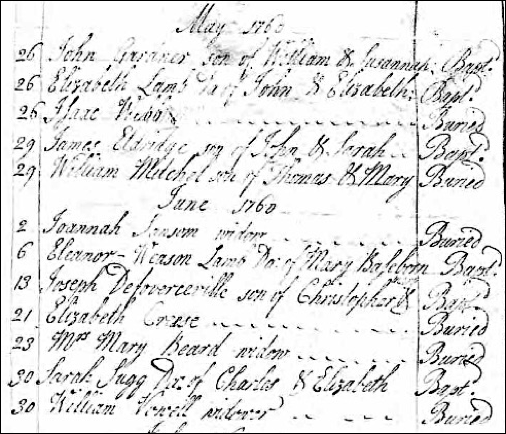 May 1760
26 John Gardner son of William & Susannah. Bapt.
26 Elizabeth Lamb Da. of John & Elizabeth. Bapt.
26 Isaac Buried
29 James Eldridge son of John & Sarah Bapt.
29 William Mitchel son of Thomas & Mary Buried
June 1760
2 Joannah Sansom widow Buried
6 Eleanor Weason Lamb Da: of Mary Baseborn Bapt.
13 Joseph son of Christopher & Bapt.
21 Elizabeth Crease Buried
23 Mrs Mary Beard widow Buried
30 Sarah Sugg Da: of Charles & Elizabeth Bapt.
30 William Vowell widower Buried